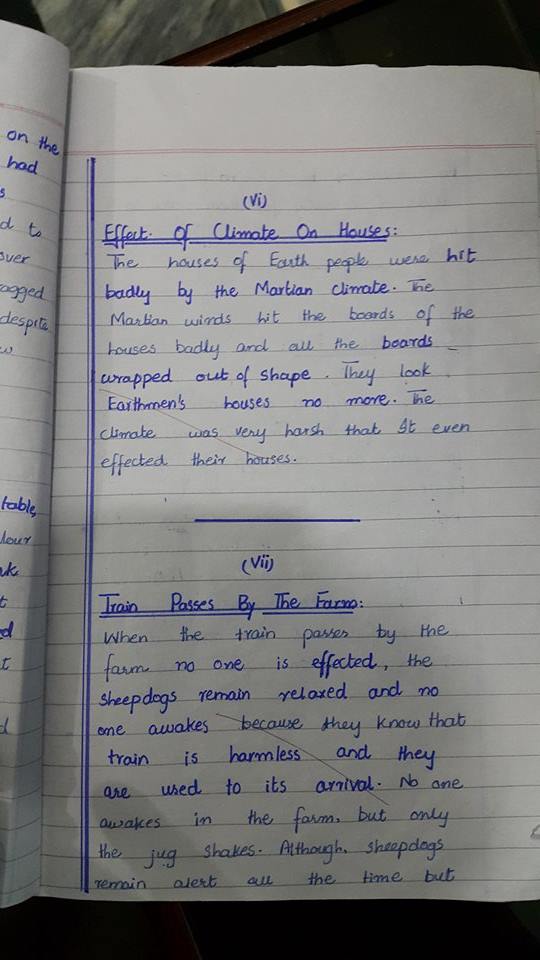 on the
had
s
d to
over
ragged
despite
w
table,
lour
uk
t
d
t
d
(Vi)
Effect. Of Climate On Houses:
The houses of Earth people were hit
badly by the Martian climate. The
Martian winds hit the boards of the
houses badly and all the boards
wrapped out of shape. They look
Earthmen's houses no more. The
climate was very harsh that It even
effected their houses.
(Vii)
Train Passes By The Farm:
When the train passes by the
farm no one is effected, the
sheepdogs remain relaxed and no
one awakes because they know that
train is harmless and they
are used to its arrival. No one
awakes in the farm, but only
the jug shakes. Although, sheepdogs
remain alert all the time but